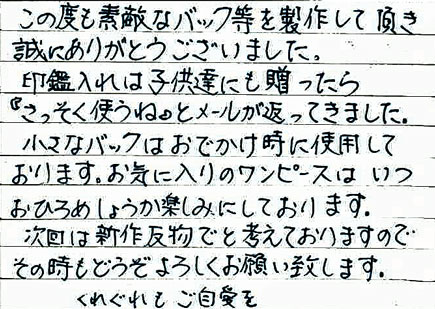 この度も素敵なバック等を製作して頂き
誠にありがとうございました。
印鑑入れは子供達にも贈ったら
『さっそく使うね』とメールが返ってきました。
小さなバックはおでかけ時に使用して
おります。お気に入りのワンピースは いつ
おひろめしょうか楽しみにしております。
次回は新作反物でと考えておりますので
その時もどうぞよろしくお願い致します。
くれぐれも ご自愛を